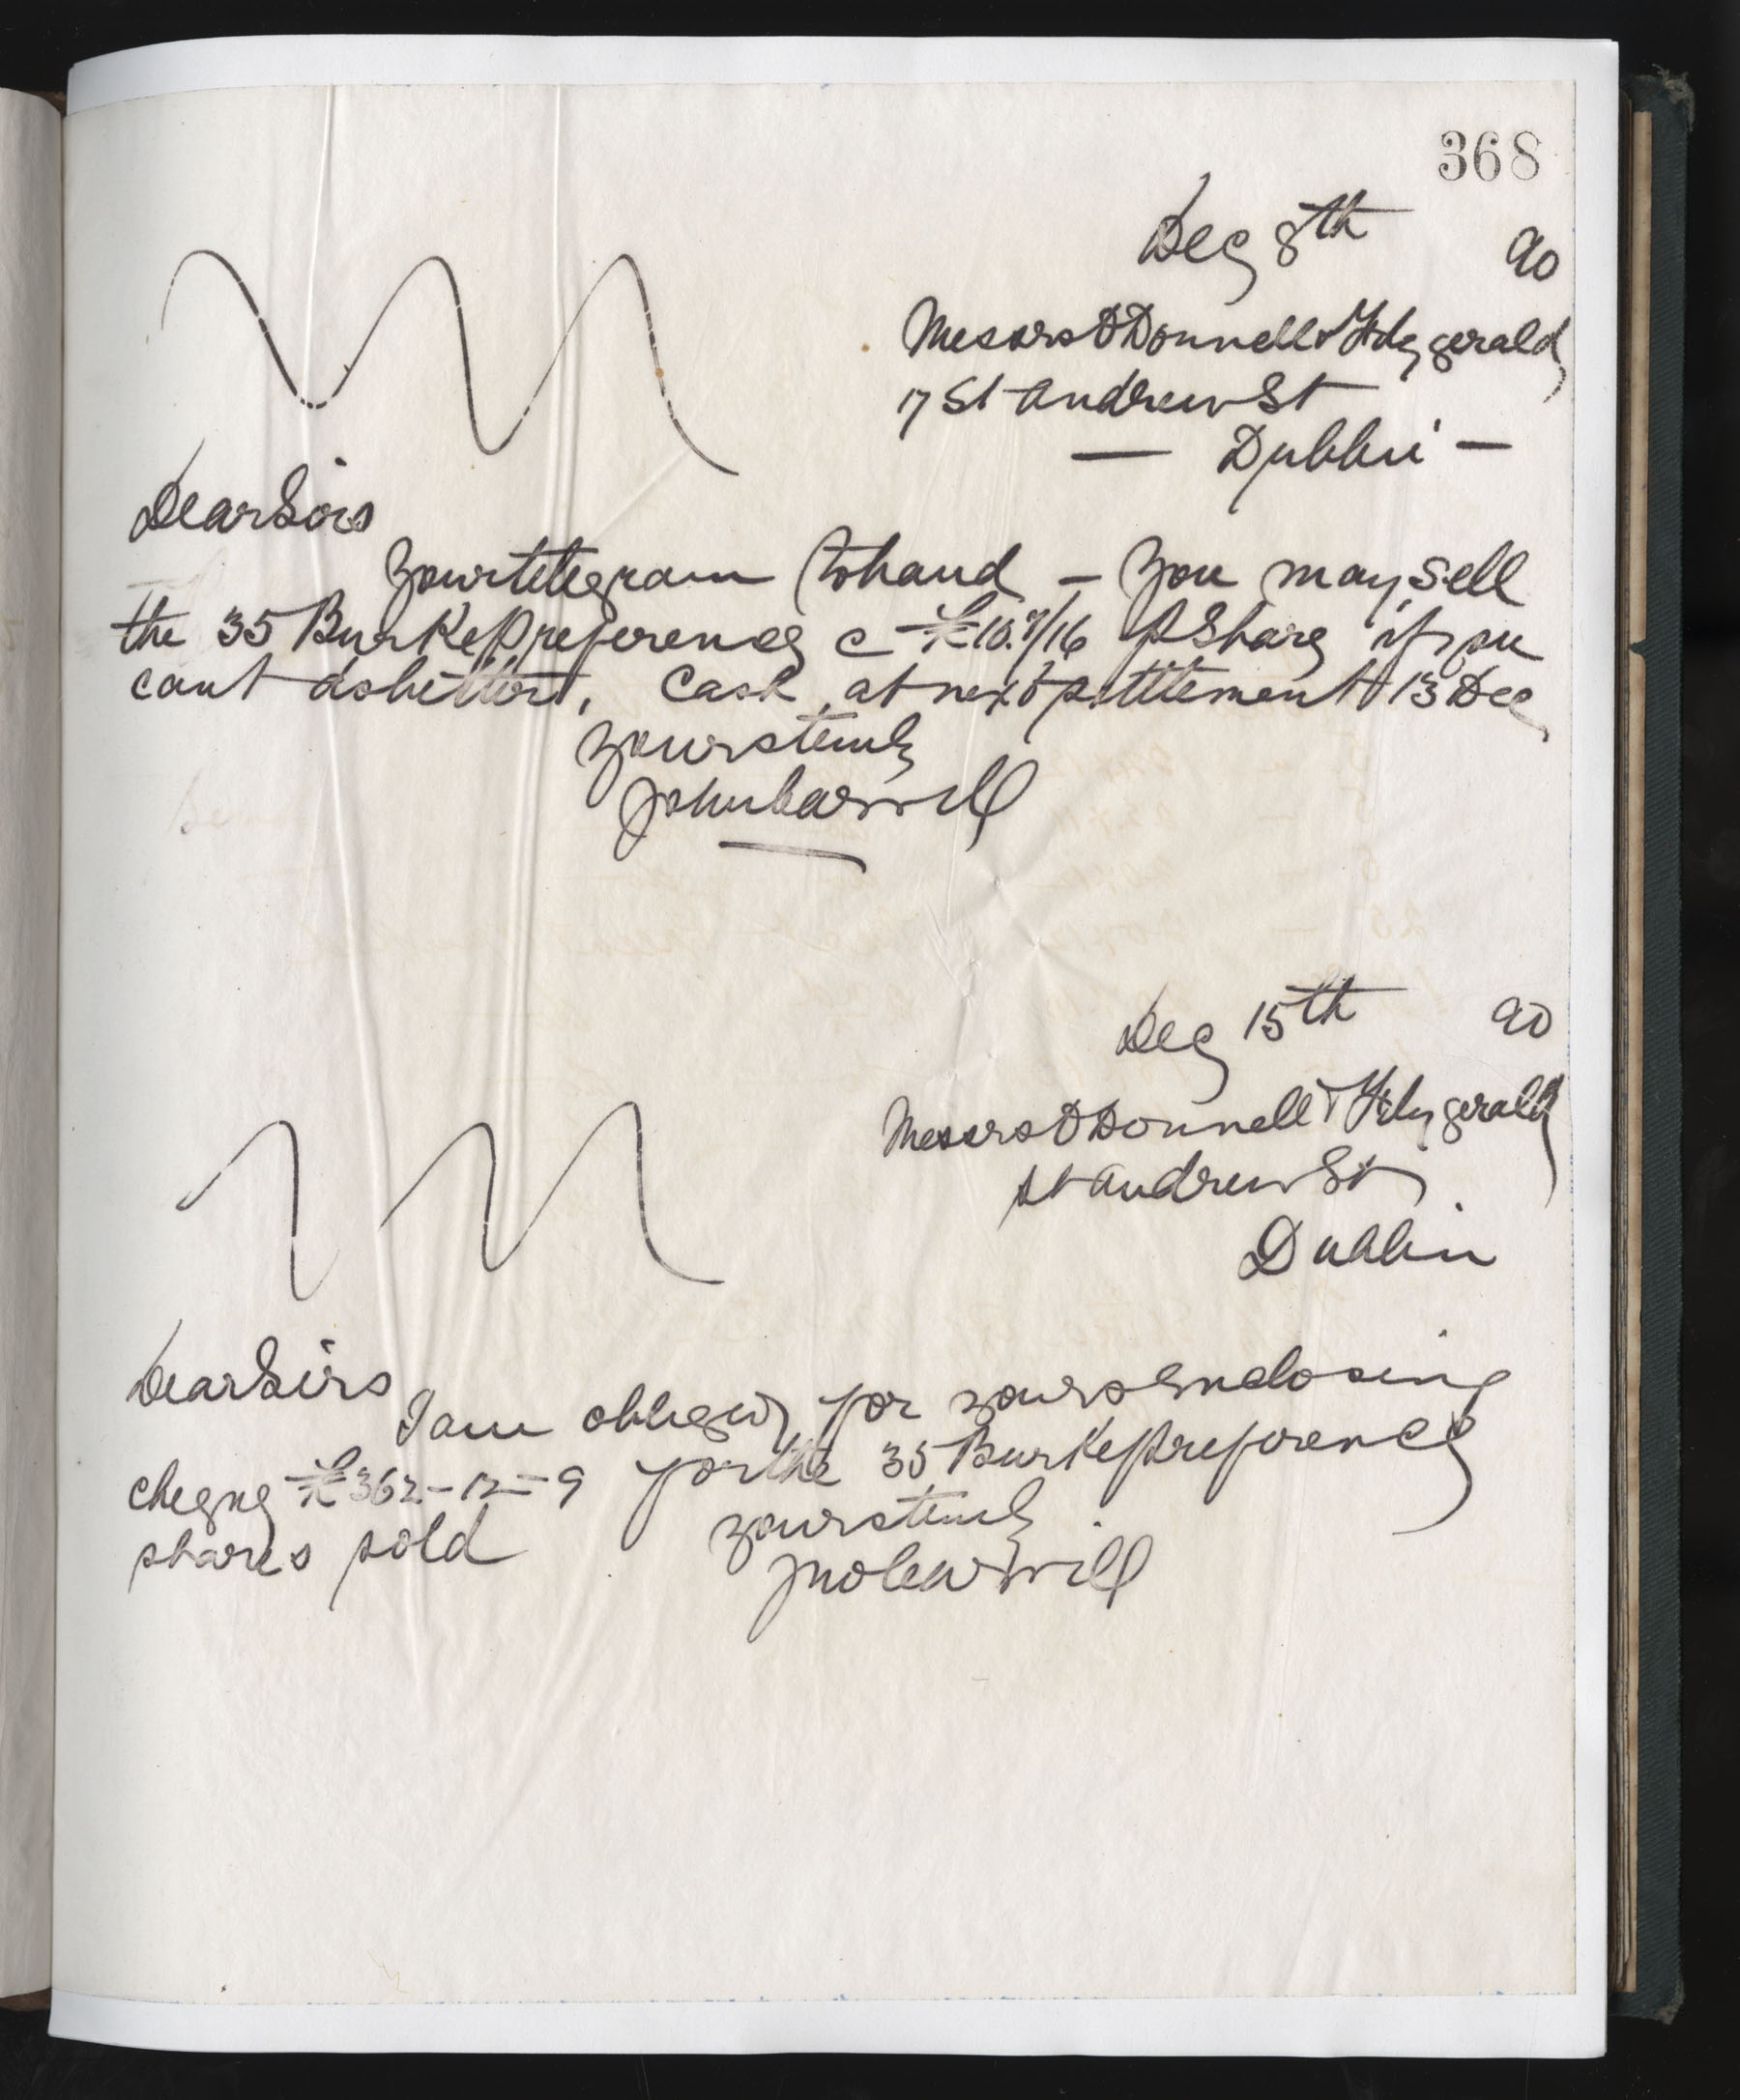 368
Dec 8th 90
Messrs O'Donnell & Fitzgerald
17 St Andrew St
— Dublin —
Dear Sirs
Your telegram to hand — You may sell
the 35 Burke preference @ £10.7/16 P Share if you
cant do better, Cash at next settlement 13 Dec
yours truly
John Carroll
Dec 15th 90
Messrs O'Donnell & Fitzgerald
St Andrew St
Dublin
Dear Sirs
I am obliged for yours enclosing
cheque £362-12-9 for the 35 Burke preference
shares sold
yours truly
Jno Carroll